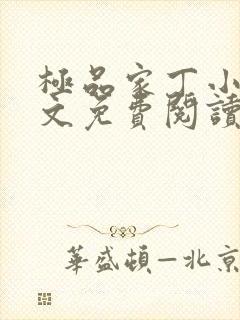 極品家丁小
文免費閱讀
華盛頓—北京